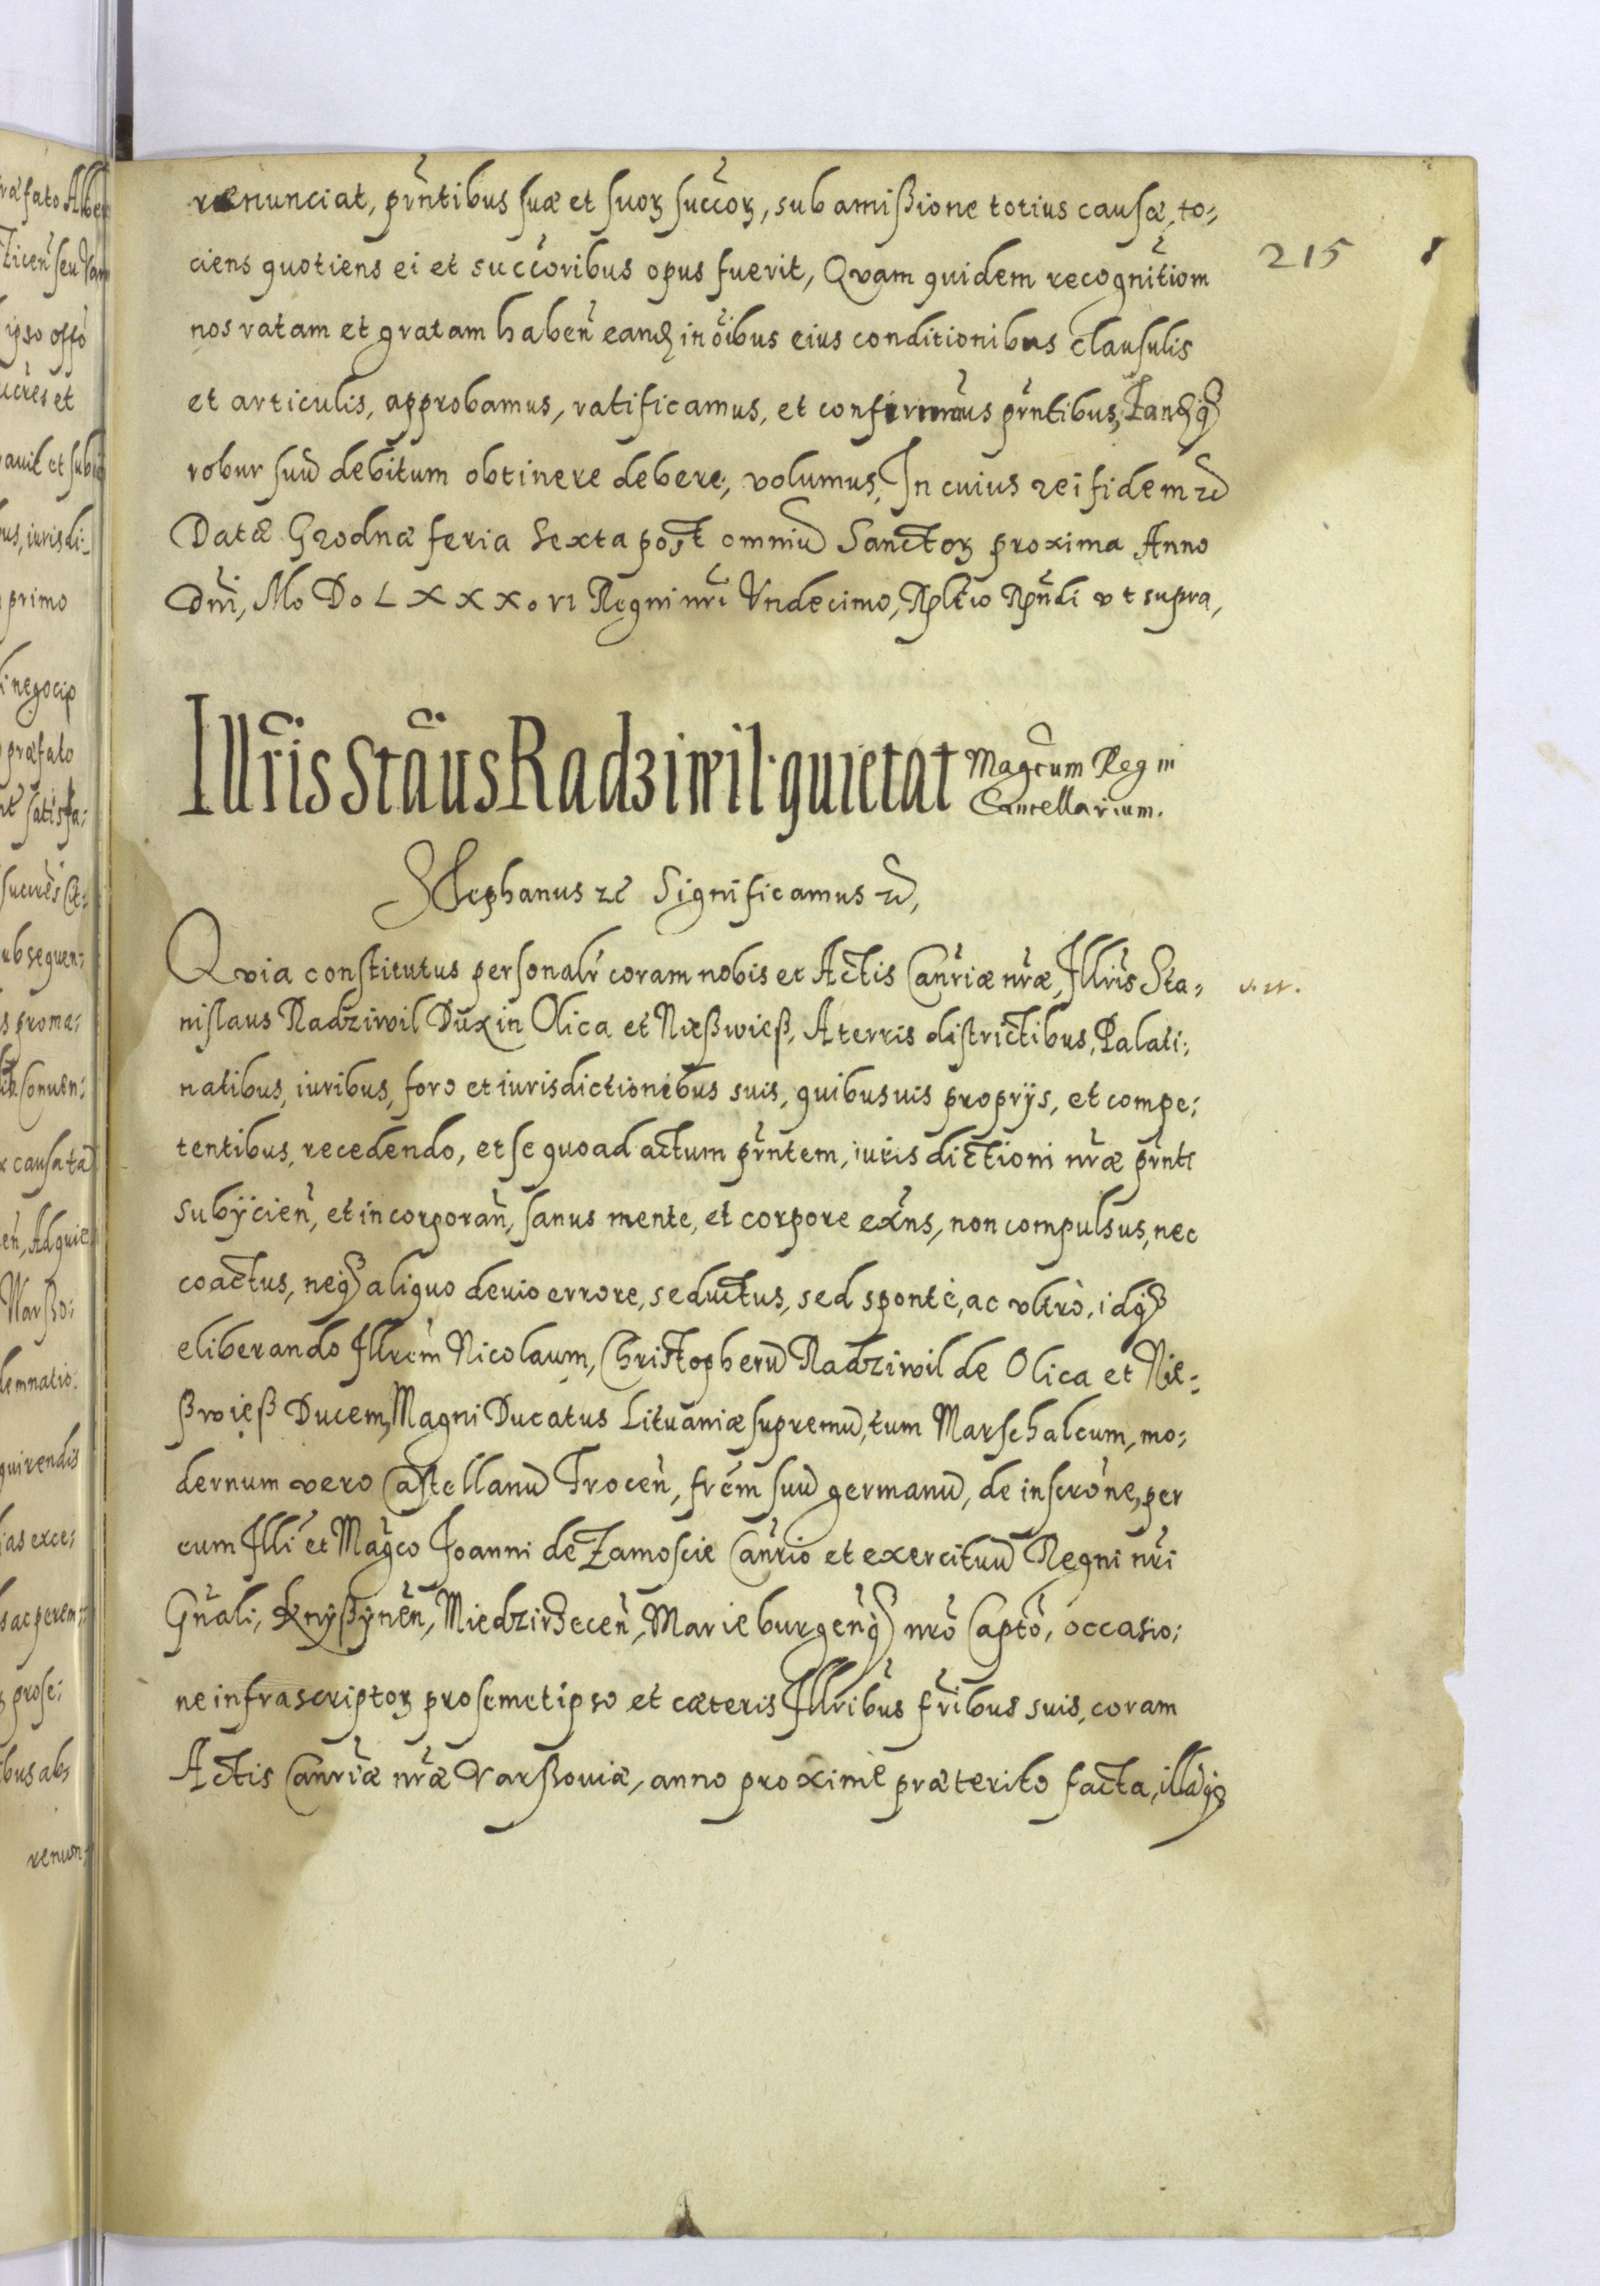 renunciat, pñntibus suæ et suoꝝ succoꝝ, sub amißione totius causæ, to=
ciens quotiens ei et succoribus opus fuerit, Qvam quidem recognitiom
nos ratam et gratam haben̄ eandꝫ in oībus eius conditionibus clausulis
et articulis, approbamus, ratificamus, et confirmam̄us pñntibus, Eandꝫqꝫ
robur suū debitum obtinere debere, volumus, In cuius rei fidem ꝛc̄
Datæ Grodnæ feria Sexta post omniū Sanctoꝝ proxima Anno
Dñi, Mo Do LXXXo vi Regni nr̄i Vndecimo, Rlc̄io Rn̄di vt supra,
215
Illr̄is Stān̄us Radziwil quietat Magc̄um Regni
Cancellarium.
Stephanus ꝛc̄ Significamus ꝛc̄,
Qvia constitutus personalr̄ coram nobis et Actis Canr̄iæ nr̄æ, Illr̄is Sta=
nislaus Radziwil Dux in Olica et Nießwieß, A terris districtibus, Palati=
natibus, iuribus, foro et iurisdictionibus suis, quibusuis proprÿs, et compe=
tentibus, recedendo, et se quoad actum pñntem, iurisdictioni nr̄æ pñnti
subÿcien̄, et incorporan̄, sanus mente, et corpore exn̄s, non compulsus, nec
coactus, neqꝫ aliquo deuio errore, seductus, sed spontè, ac vltrò, idqꝫ
eliberando Illrēm Nicolaum, Christopherū Radziwil de Olica et Nie=
ßwieß Ducem, Magni Ducatus Lituaniæ supremū, tum Marschalcum, mo=
dernum vero Castellanū Trocen̄, frēm suū germanū, de inscrōne, per
eum Illi et Magco Joanni de Zamoscie Canr̄io et exercituū Regni nr̄i
Gn̄ali, Knyßynēn̄, Miedzirzecen̄, Marieburgen̄qꝫ nr̄o Captō, occasio=
ne infrascriptoꝝ pro semetipso et cæteris Illribus fr̄ibus suis, coram
Actis Canr̄iæ nr̄æ Varßouiæ, anno proximè præterito facta, illāqꝫ